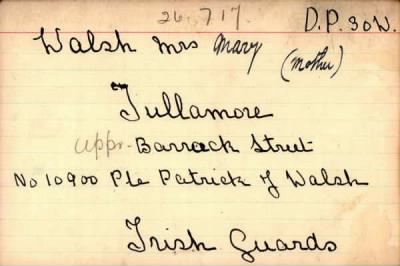 26.7.17. D.P. 30W.
Walsh Mrs Mary (Mother)
Tullamore
uppr Barrack Street
No 10900 Pte Patrick J Walsh
Irish Guards